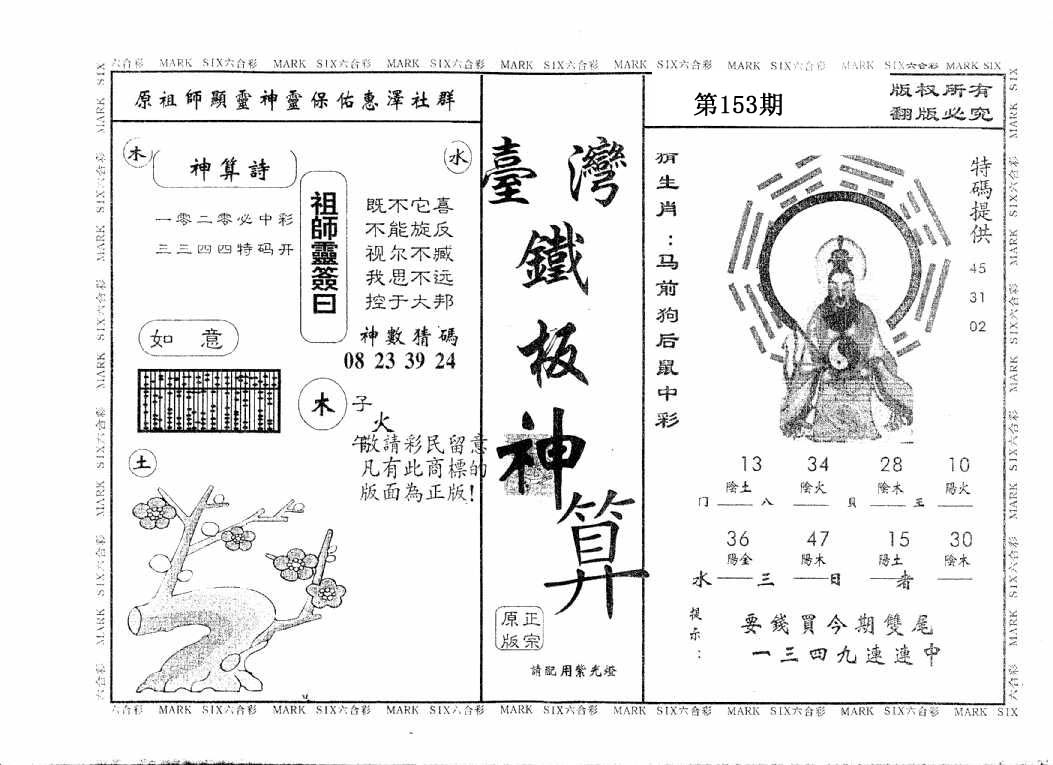 六合彩 MARK SIX六合彩 MARK SIX六合彩 MARK SIX六合彩 MARK SIX六合彩 MARK SIX六合彩 MARK SIX六合彩 MARK SIX六合彩 MARK SIX
原祖師顯靈神靈保佑惠澤社群
木
水
神算詩
一零二零必中彩
三三四四特码开
祖師靈簽曰
既不它喜
不能旋反
视尔不臧
我思不远
控于大邦
神數猜碼
08 23 39 24
如意
木
子
火
午
敬請彩民留意
凡有此商標的
版面為正版!
土
臺灣鐵板神算
原正
版宗
請配用紫光燈
第153期
版权所有
翻版必究
猜生肖:马前狗后鼠中彩
特碼提供
45
31
02
13 34 28 10
陰土 陰火 陰木 陽火
门 八 貝 玉
36 47 15 30
陽金 陽木 陽土 陰木
水 三 日 者
提示:
要錢買今期雙尾
一三四九連連中
六合彩 MARK SIX六合彩 MARK SIX六合彩 MARK SIX六合彩 MARK SIX六合彩 MARK SIX六合彩 MARK SIX六合彩 MARK SIX六合彩 MARK SIX